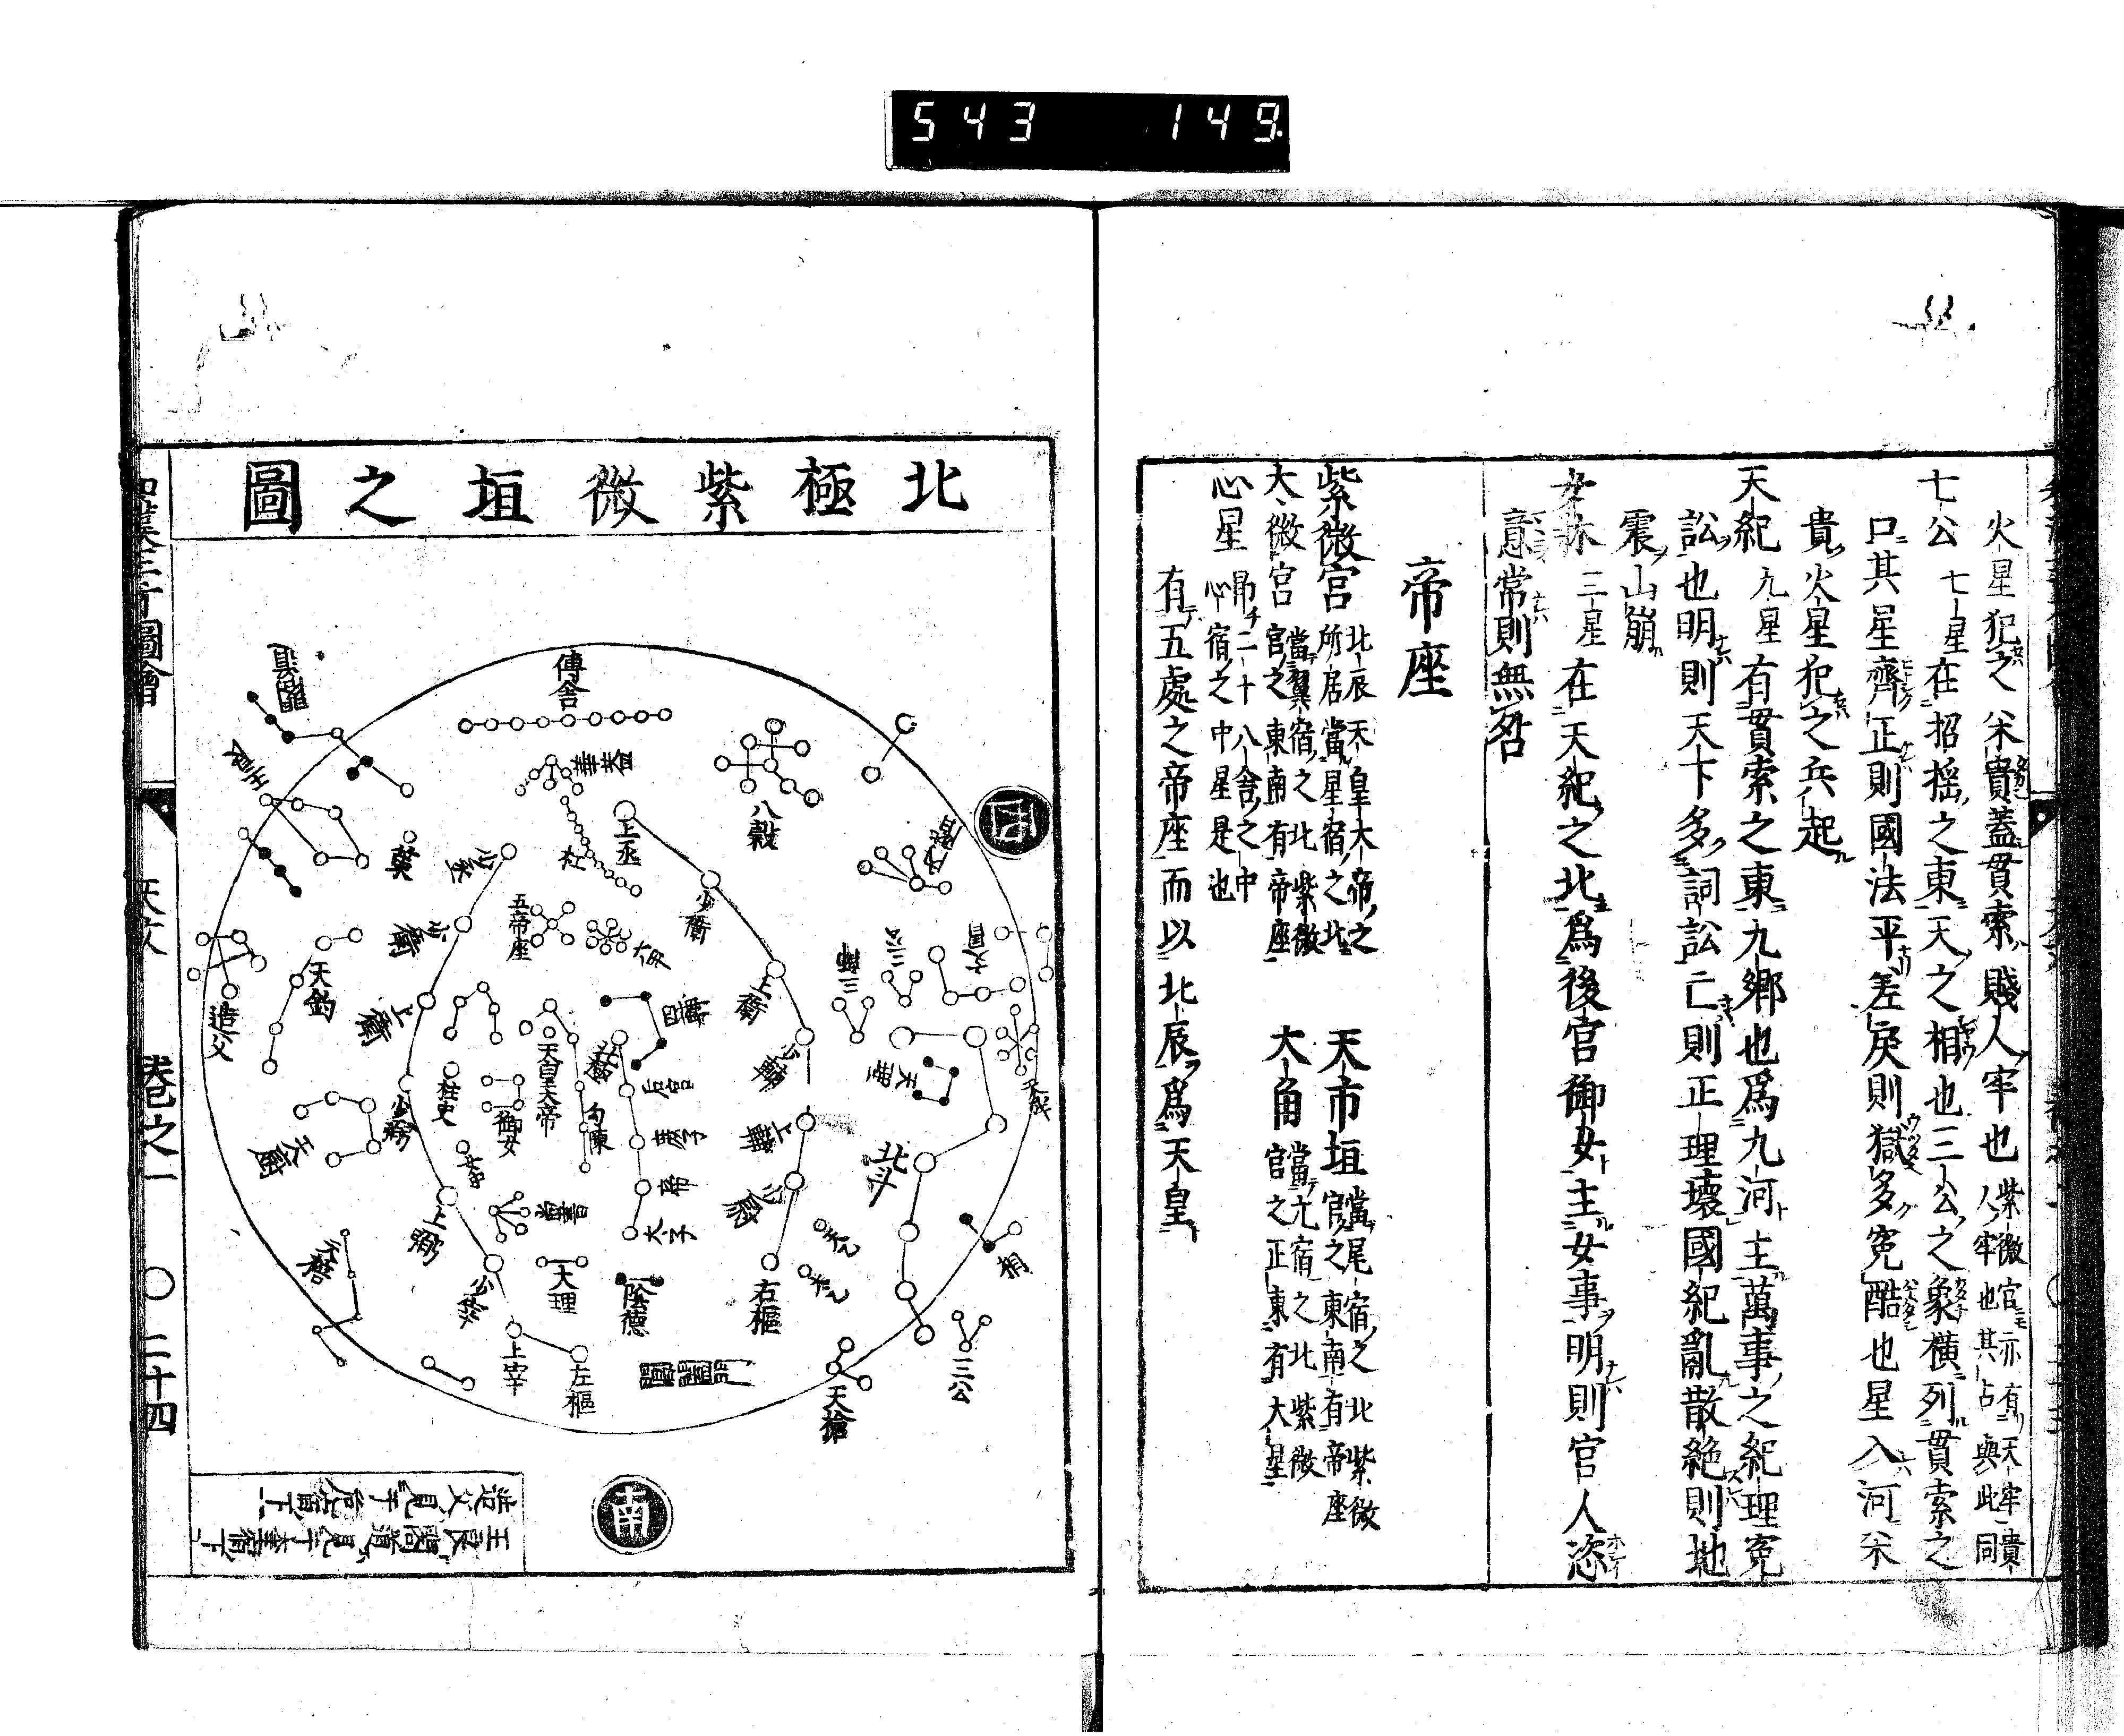 543 149
火星犯之米貴蓋貫索賤人牢也紫微宮亦有天牢貴人牢也其占與此同
七公 七星在招揺之東天之相也三公之象橫列貫索之
口其星齊正則國法平差戾則獄多寃酷也星入河米
貴火星犯之兵起
天紀 九星有貫索之東九鄉也爲九河主萬事之紀理寃
訟也明則天下多詞訟亡則正理壞國紀亂散絶則地
震山崩
女牀 三星在天紀之北爲後宮御女主女事明則宮人恣
意常則無咎
帝座
紫微宮 北辰天皇大帝之所居當星宿之北 天市垣 當尾宿之北紫微宮之東南有帝座
大微宮 當翼宿之北紫微宮之東南有帝座 大角 當亢宿之北紫微宮之正東有大星
心星 昴チ二十八舍之中心宿之中星是也
有五處之帝座而以北辰爲天皇
北極紫微垣之圖
傳舍
華蓋
八穀
上丞
五帝座
六甲
少衛
上衛
四輔
三公
文昌
王良
造父
天鈎
上衛
少衛
柱史
御女
天皇大帝
勾陳
后宮
庶子
帝
太子
少輔
上輔
北斗
天厨
上弼
少弼
天棓
尚書
大理
陰德
右樞
左樞
上宰
少宰
天乙
太乙
三公
天槍
南
王良閣道見于奎宿下
造父見于危宿下
和漢三才圖會
天文
卷之一
〇二十四